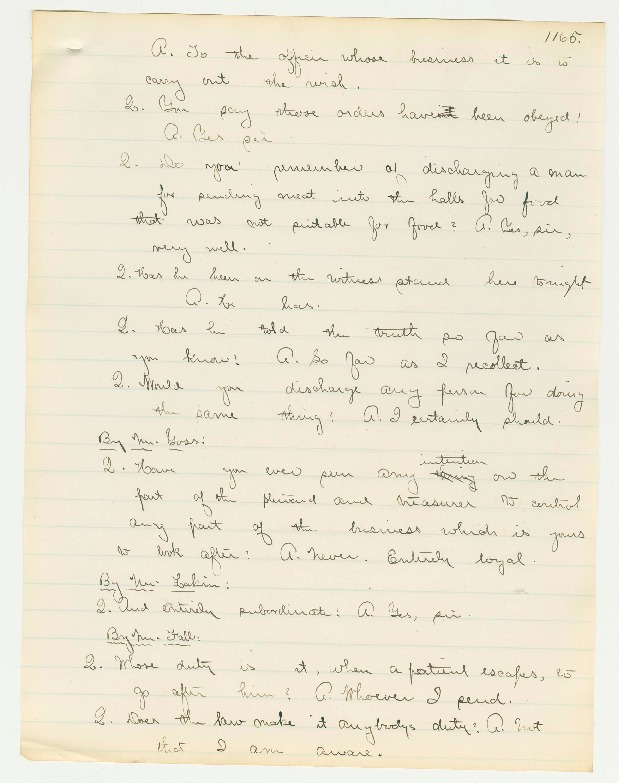 1165.
A. To the officer whose business it is to
carry out the wish.
Q. You say those orders have been obeyed?
A. Yes sir
Q. Do you remember of discharging a man
for sending meat into the halls for food
that was not suitable for food? A. Yes, sir,
very well.
Q. Has he been on the witness stand here tonight
A. He has.
Q. Has he told the truth so far as
you know? A. So far as I recollect.
Q. Would you discharge any person for doing
the same thing? A. I certainly should.
By Mr. Goss:
intention
Q. Have you ever seen any thing on the
part of the steward and treasurer to control
any part of the business which is yours
to look after? A. Never. Entirely loyal.
By Mr. Lakin:
Q. And entirely subordinate? A. Yes, sir.
By Mr. Fall:
Q. Whose duty is it, when a patient escapes, to
go after him? A. Whoever I send.
Q. Does the law make it anybodys duty? A. Not
that I am aware.